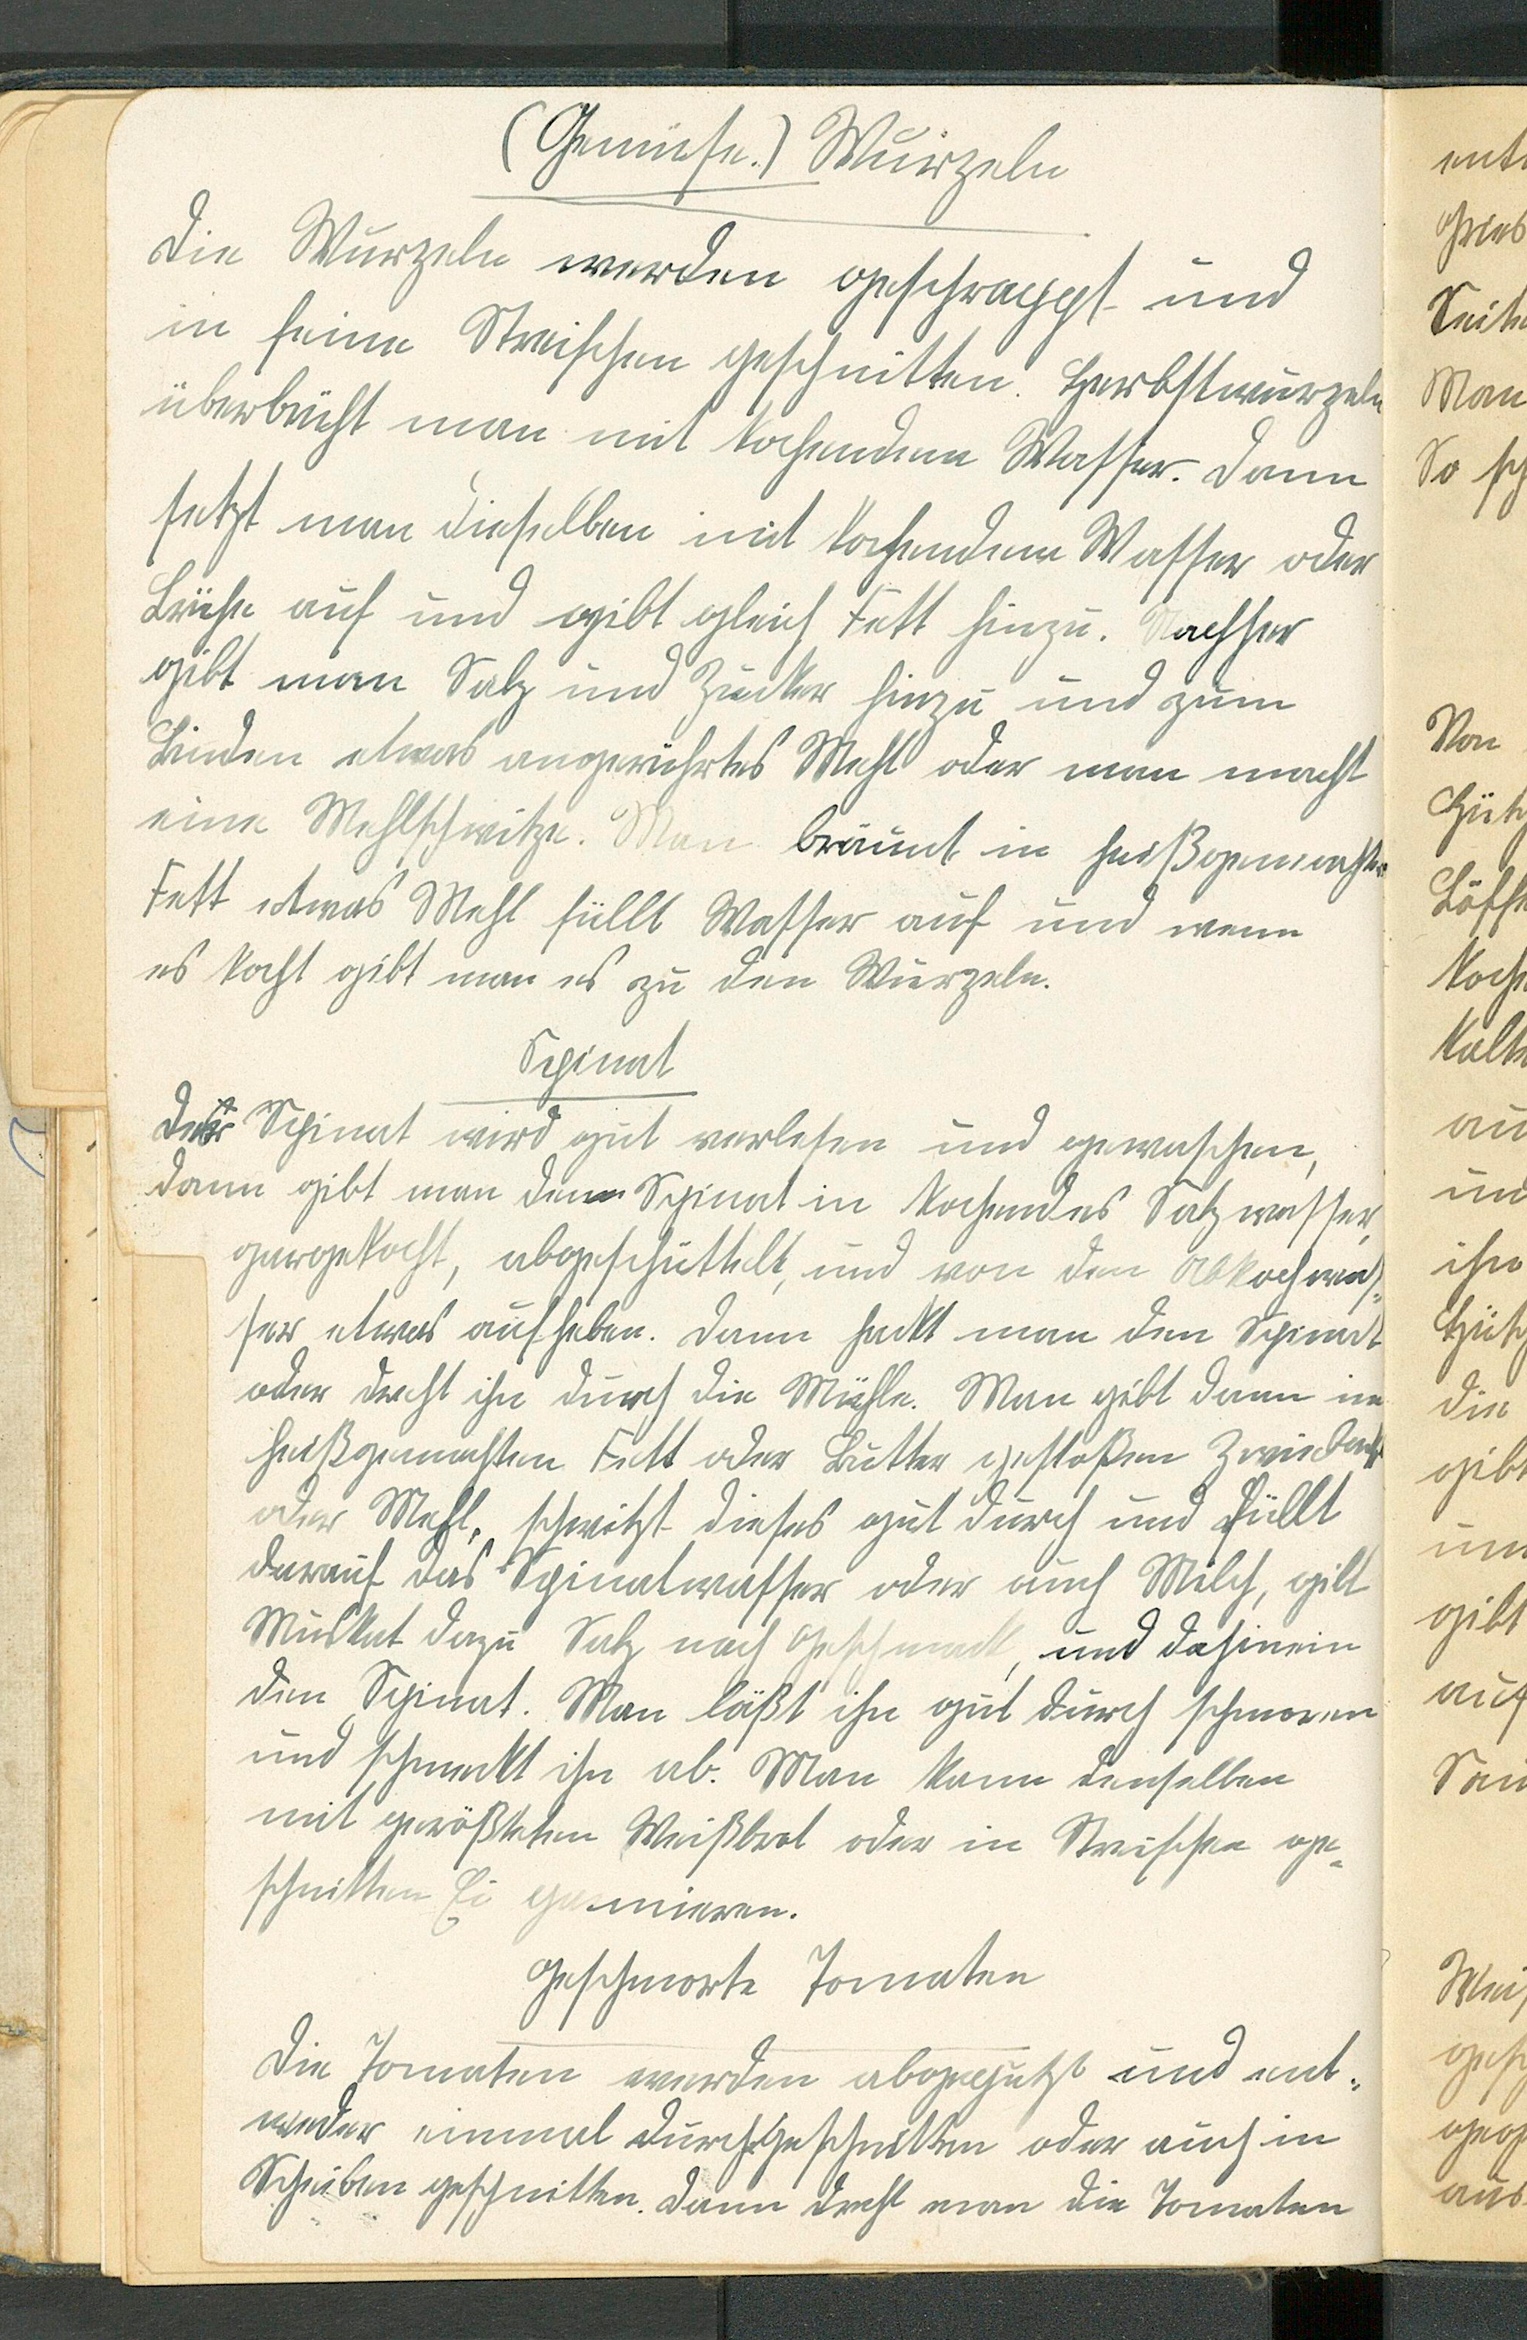 (Gemüse.) Wurzeln
Die Wurzeln werden geschrappt und
in feine Streifchen geschnitten. Herbstwurzeln
überbrüht man mit kochendem Wasser. Dann
setzt man dieselben mit kochendem Wasser oder
Brühe auf und gibt gleich Fett hinzu. Nachher
gibt man Salz und Zucker hinzu und zum
Binden etwas angerührtes Mehl oder man macht
eine Mehlschwitze. Man bräunt in heißgemachten
Fett etwas Mehl füllt Wasser auf und wenn
es kocht gibt man es zu den Wurzeln.
Spinat
Der Spinat wird gut verlesen und gewaschen,
dann gibt man den Spinat in kochendes Salzwasser,
gargekocht, abgeschüttelt, und von den Abkochwas-
ser etwas aufheben. Dann hackt man den Spinat
oder dreht ihn durch die Mühle. Man gibt dann in
heißgemachten Fett oder Butter gestoßen Zwieback
oder Mehl, schwitzt dieses gut durch und füllt
darauf das Spinatwasser oder auch Milch, gibt
Muskat dazu Salz nach Geschmack, und dahinein
den Spinat. Man läßt ihn gut durch schmoren
und schmeckt ihn ab. Man kann denselben
mit gerößteten Weißbrot oder in Streifchen ge-
schnitten Ei garnieren.
Geschmorte Tomaten
Die Tomaten werden abgeputzt und ent-
weder einmal durchgeschnitten oder auch in
Scheiben geschnitten. Dann dreht man die Tomaten
Man
So
Von
die
gibt
gibt
auf